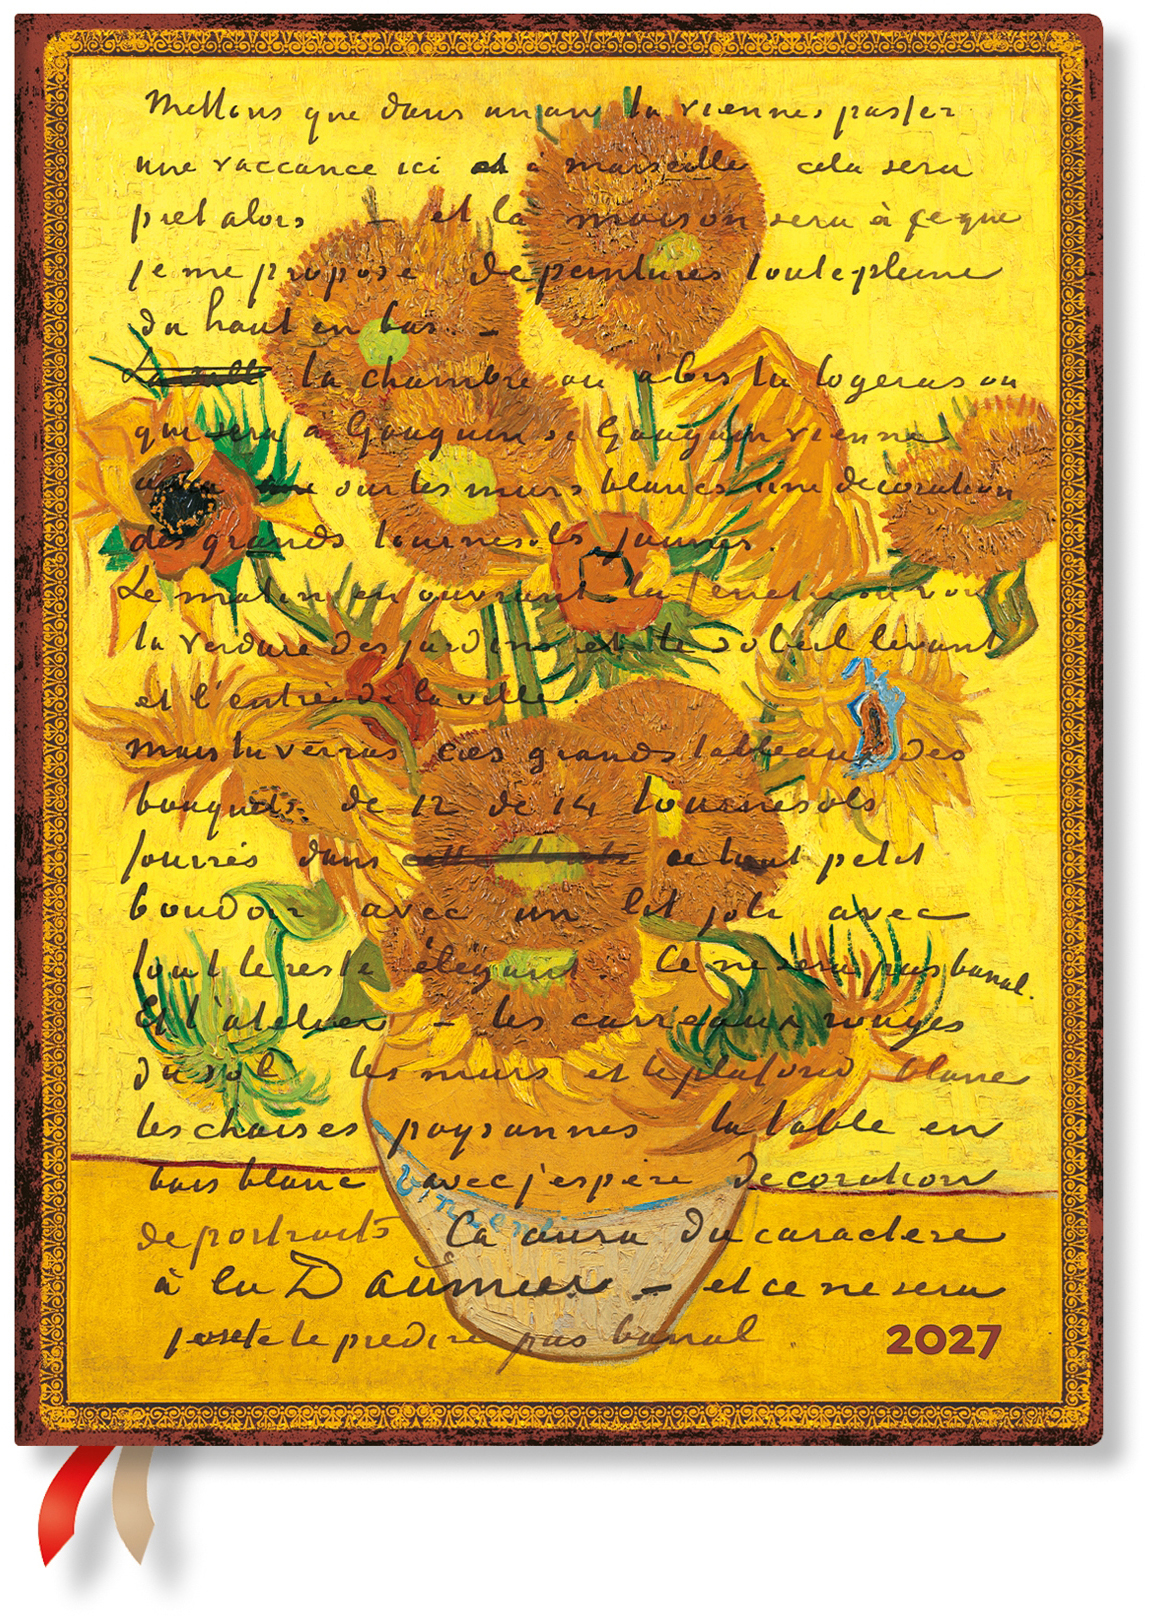 Mettons que dans un an tu viennes passer
une vaccance ici et à marseille cela sera
pret alors – et la maison sera à ce que
je me propose de peintures toute pleine
du haut en bas. –
la chambre ou alors tu logeras ou
qui sera à Gauguin si Gauguin vienne
aura sur les murs blancs une decoration
des grands tournesols jaunes.
Le matin en ouvrant la fenetre on voit
la verdure des jardins et le soleil levant
et l'entrée de la ville.
Mais tu verras ces grands tableaux des
bouquets de 12 de 14 tournesols
fourrés dans ce tout petit
boudoir avec un lit joli avec
tout le reste élégant. Ce ne sera pas banal.
Et l'atelier – les carreaux rouges
du sol les murs et le plafond blancs
les chaises paysannes la table en
bois blanc avec j'espère decoration
de portraits Ca aura du caractere
à la Daumier – et ce ne sera
je te le predire pas banal.
Vincent
2027